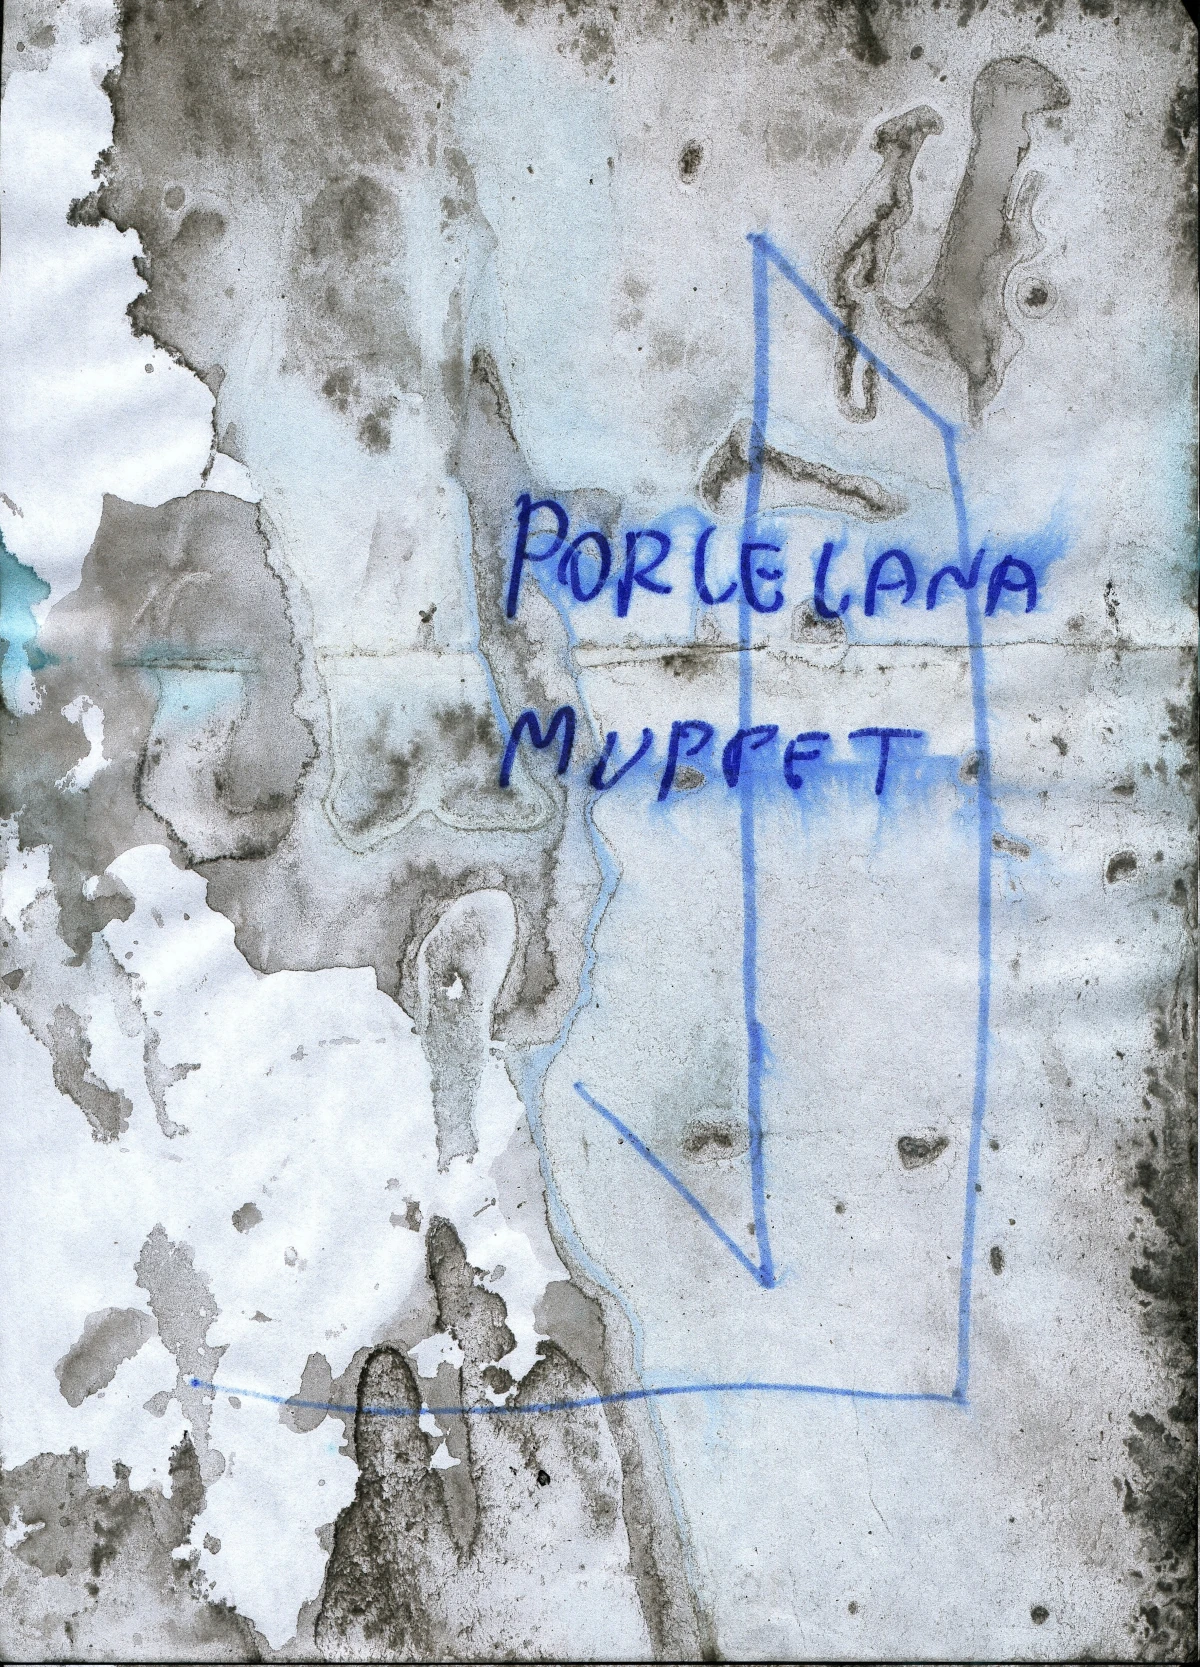 PORCELANA
MUPPET